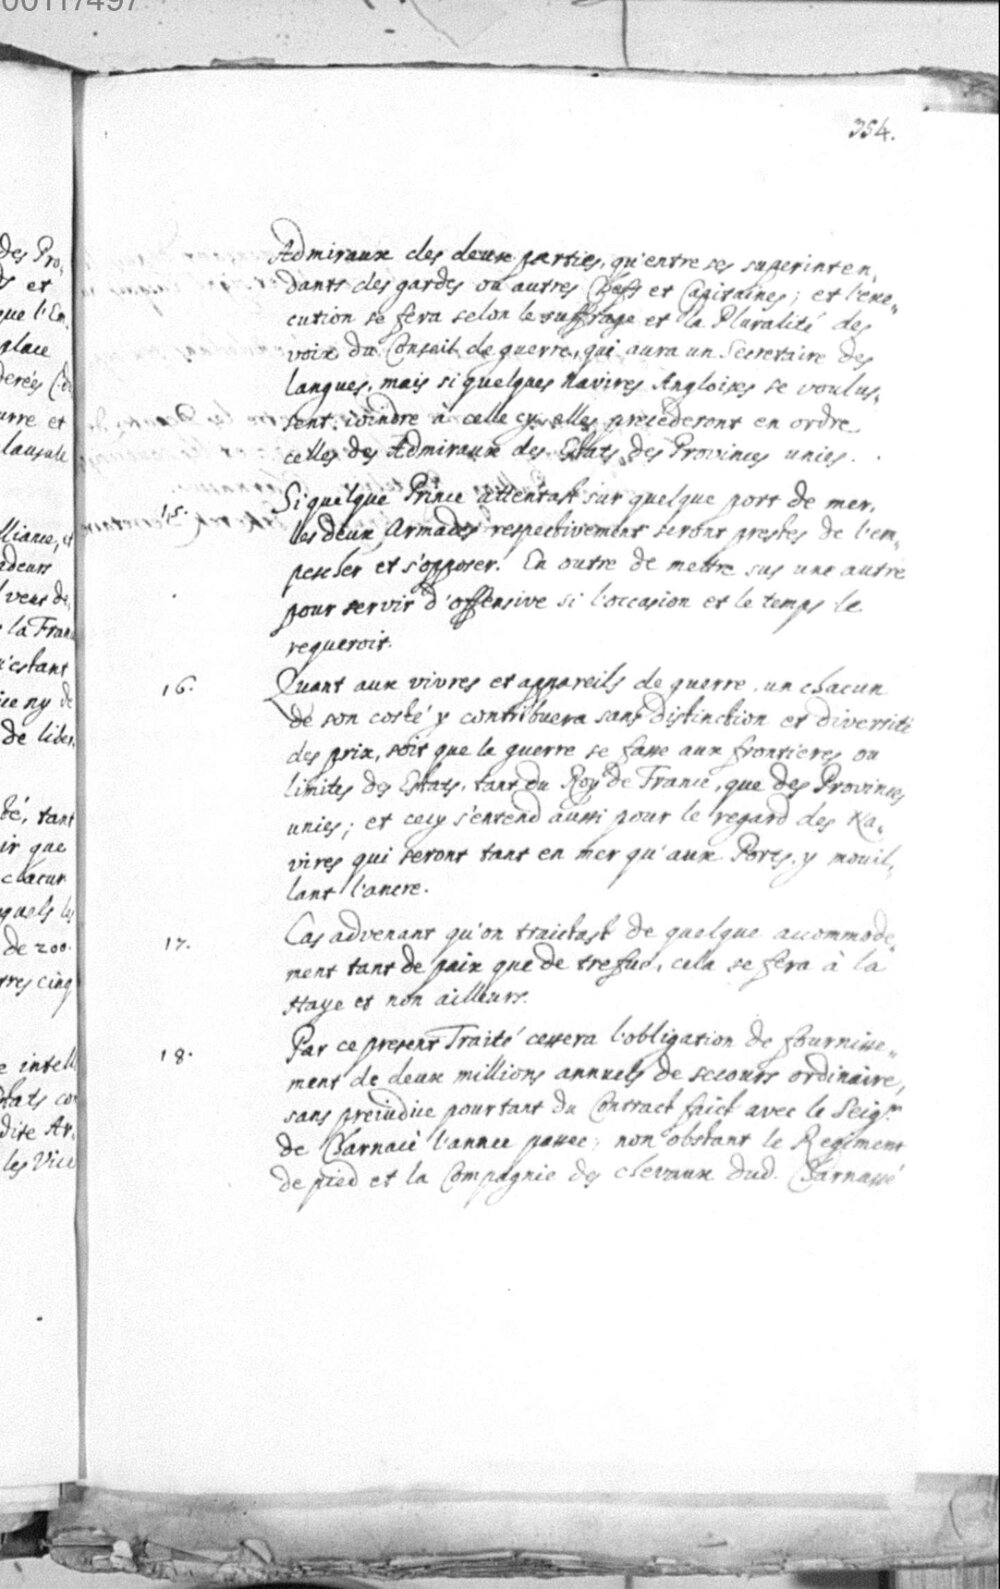 00117497
354.
Admiraux des deux parties, qu'entre ses superinten,
dants des gardes ou autres Chefs et Capitaines; et l'exe,
cution se fera selon le suffrage et la Pluralité des
voix du Conseil de guerre, qui aura un Secretaire des
langues, mais si quelques navires Angloises se voulus,
sent ioindre à celle cy, elles precederont en ordre
celles des Admiraux des Estats des Provinces unies.
15. Si quelque Prince attentast sur quelque port de mer,
les deux Armades respectivement seront prestes de l'em,
pescher et s'opposer. En outre de mettre sus une autre
pour servir d'offensive si l'occasion et le temps le
requeroit.
16. Quant aux vivres et appareils de guerre, un chacun
de son costé y contribuera sans distinction et diversité
des prix, soit que la guerre se fasse aux frontieres ou
limites des Estats, tant du Roy de France, que des Provinces
unies; et cecy s'entend aussi pour le regard des Na,
vires qui seront tant en mer qu'aux Ports, y mouil,
lant l'ancre.
17. Cas advenant qu'on traictast de quelque accommode,
ment tant de paix que de trefue, cela se fera à la
Haye et non ailleurs.
18. Par ce present Traité cessera l'obligation de fournisse,
ment de deux millions annuels de secours ordinaire,
sans preiudice pourtant du Contract faict avec le Seigr.
de Charnacé l'annee passee; non obstant le Regiment
de pied et la Compagnie des chevaux dud. Charnassé
des Pro,
et
que l'En,
place
derés
urre et
lausule
lliance, et
adeurs
vent de
la Fran
n'estant
ny de
de liber,
té, tant
ir que
chacun
quels les
de 200.
tres cinq
intell
dite Ar,
les Vice